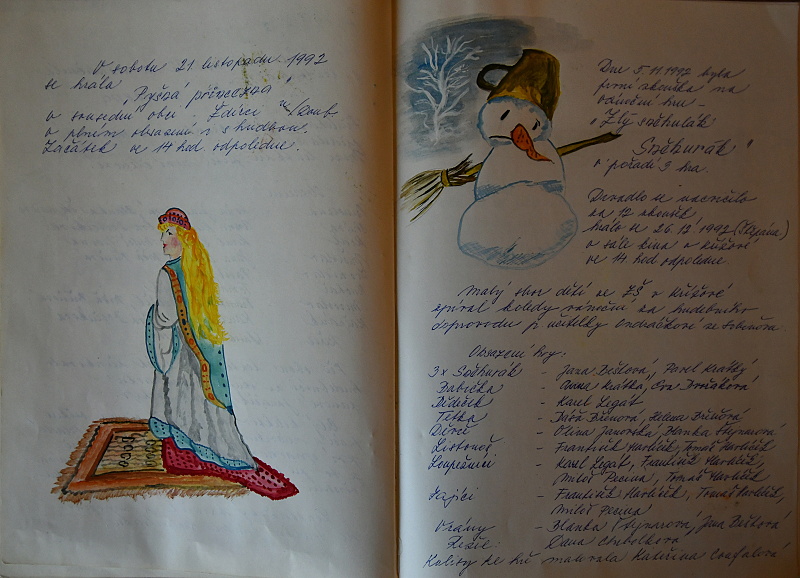 V sobotu 21. listopadu 1992
se hrála „Pyšná princezna"
v sousední obci Ždírci n/Doub
v plném obsazení i s hudbou.
Začátek ve 14 hod odpoledne.
Dne 5.11.1992 byla
první zkouška na
vánoční hru –
„Zlý sněhulák
Sněhurák"
v pořadí 3 hra.
Divadlo se nacvičilo
za 12 zkoušek
hrálo se 26.12.1992 (Štěpána)
v sále kina v Křížové
ve 14 hod odpoledne.
Malý sbor dětí ze ZŠ v Křížové
zpíval koledy vánoční za hudebního
doprovodu p. učitelky Ondráčkové ze Sobíňova.
Obsazení hry:
3x Sněhurák – Jana Pavel Krátký
Babička – Anna Krátká, Eva
Dědeček – Karel Legát
Tetka – Helena
Děvče – Olina Janovská, Blanka
Listonoš – František Havlíček, Tomáš Havlíček
Loupežníci – Karel Legát, František Havlíček,
Miloš Pecina, Tomáš Havlíček
Zajíci – František Havlíček, Tomáš Havlíček,
Miloš Pecina
Vrány – Blanka Jana
Režie: Dana
Kulisy ke hře malovala Kateřina